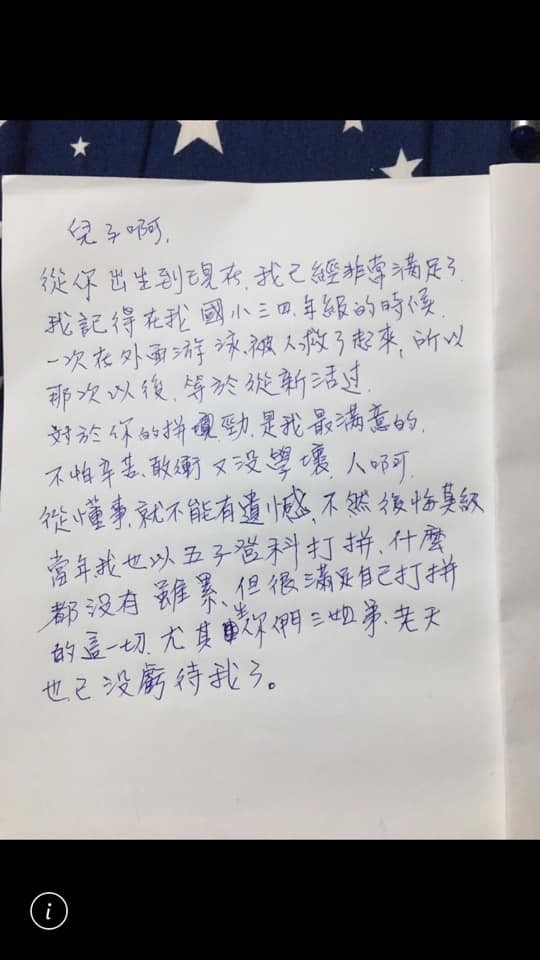 兒子啊,
從你出生到現在,我已經非常滿足了.
我記得在我國小三四年級的時候,
一次在外面游泳,被人救了起來,所以
那次以後,等於從新活过.
對於你的拼勁,是我最滿意的,
不怕辛苦、敢衝又沒學壞,人啊,
從懂事,就不能有遺憾,不然後悔莫
當年我也以五子登科打拼,什麼
都沒有雖累、但很滿足自己打拼
的這一切.尤其你們三姐弟.老天
也已沒虧待我了。